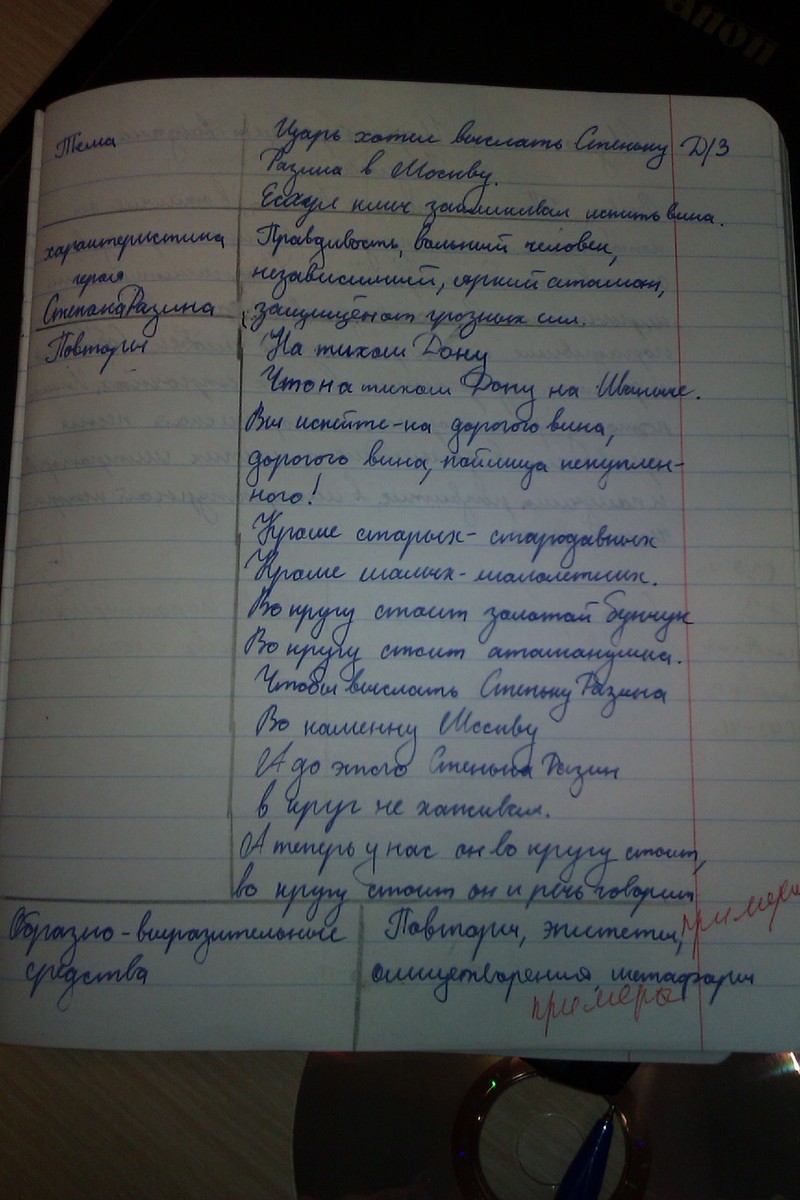 anon
Тема
Царь хотел выслать Стеньку Д/З
Разина в Москву.
Есаул клич закликивал испить вина.
характеристика
героя
Степана Разина
Правдивость, вольный человек,
независимый, яркий атаман,
защищён от грозных сил.
Повторы
На тихом Дону
Что на тихом Дону на Иваныче.
Вы испейте-ка дорогого вина,
дорогого вина, пойлица некуплен-
ного!
Кроме старых - стародавных
Кроме малых - малолетних.
Во кругу стоит золотой бунчук
Во кругу стоит атаманушка.
Чтобы выслать Стеньку Разина
Во каменну Москву
А до этого Стенька Разин
в круг не хаживал.
А теперь у нас он во кругу стоит,
во кругу стоит он и речь говорит
Образно - выразительные
средства
Повторы, эпитеты, примеры
олицетворения метафоры
примеры